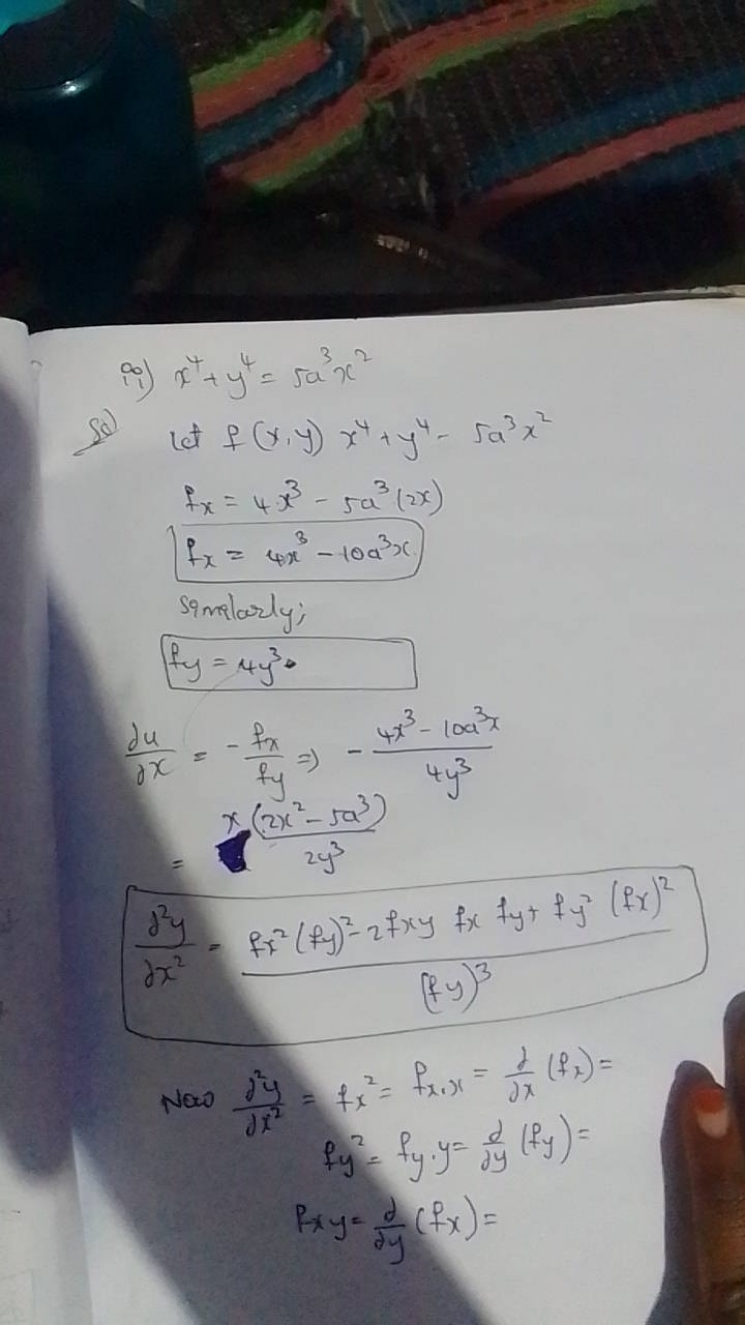 iii) x⁴ + y⁴ = 5a³x²
Sol) Let f(x,y) x⁴ + y⁴ - 5a³x²
fx = 4x³ - 5a³(2x)
fx = 4x³ - 10a³x
Similarly;
fy = 4y³.
∂u/∂x = - fx/fy ⇒ - (4x³ - 10a³x)/(4y³)
= x(2x² - 5a³)/(2y³)
∂²y/∂x² = (fx²(fy)² - 2fxy fx fy + fy²(fx)²)/((fy)³)
Now ∂²y/∂x² = fx² = fx.x = ∂/∂x (fx) =
fy² = fy.y = ∂/∂y (fy) =
fxy = ∂/∂y (fx) =